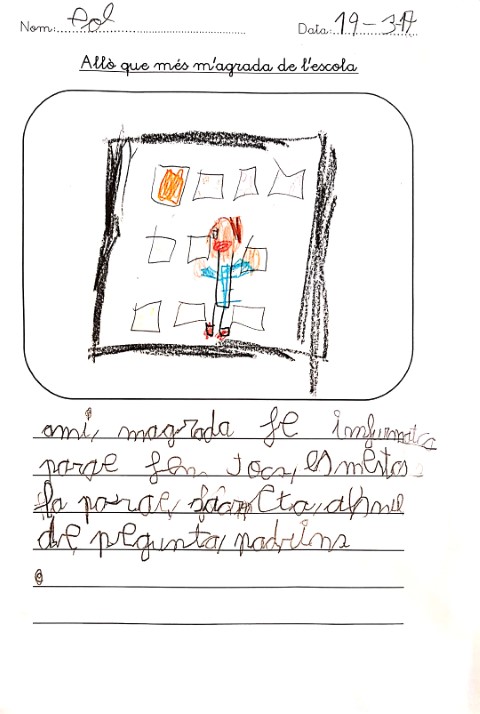 Nom: Pol
Data: 19-3-17
Allò que més m'agrada de l'escola
ami, magrada fe infurmatca
parqe fem jocs, es mestos
fa parqe,
de, pegunta, padrins